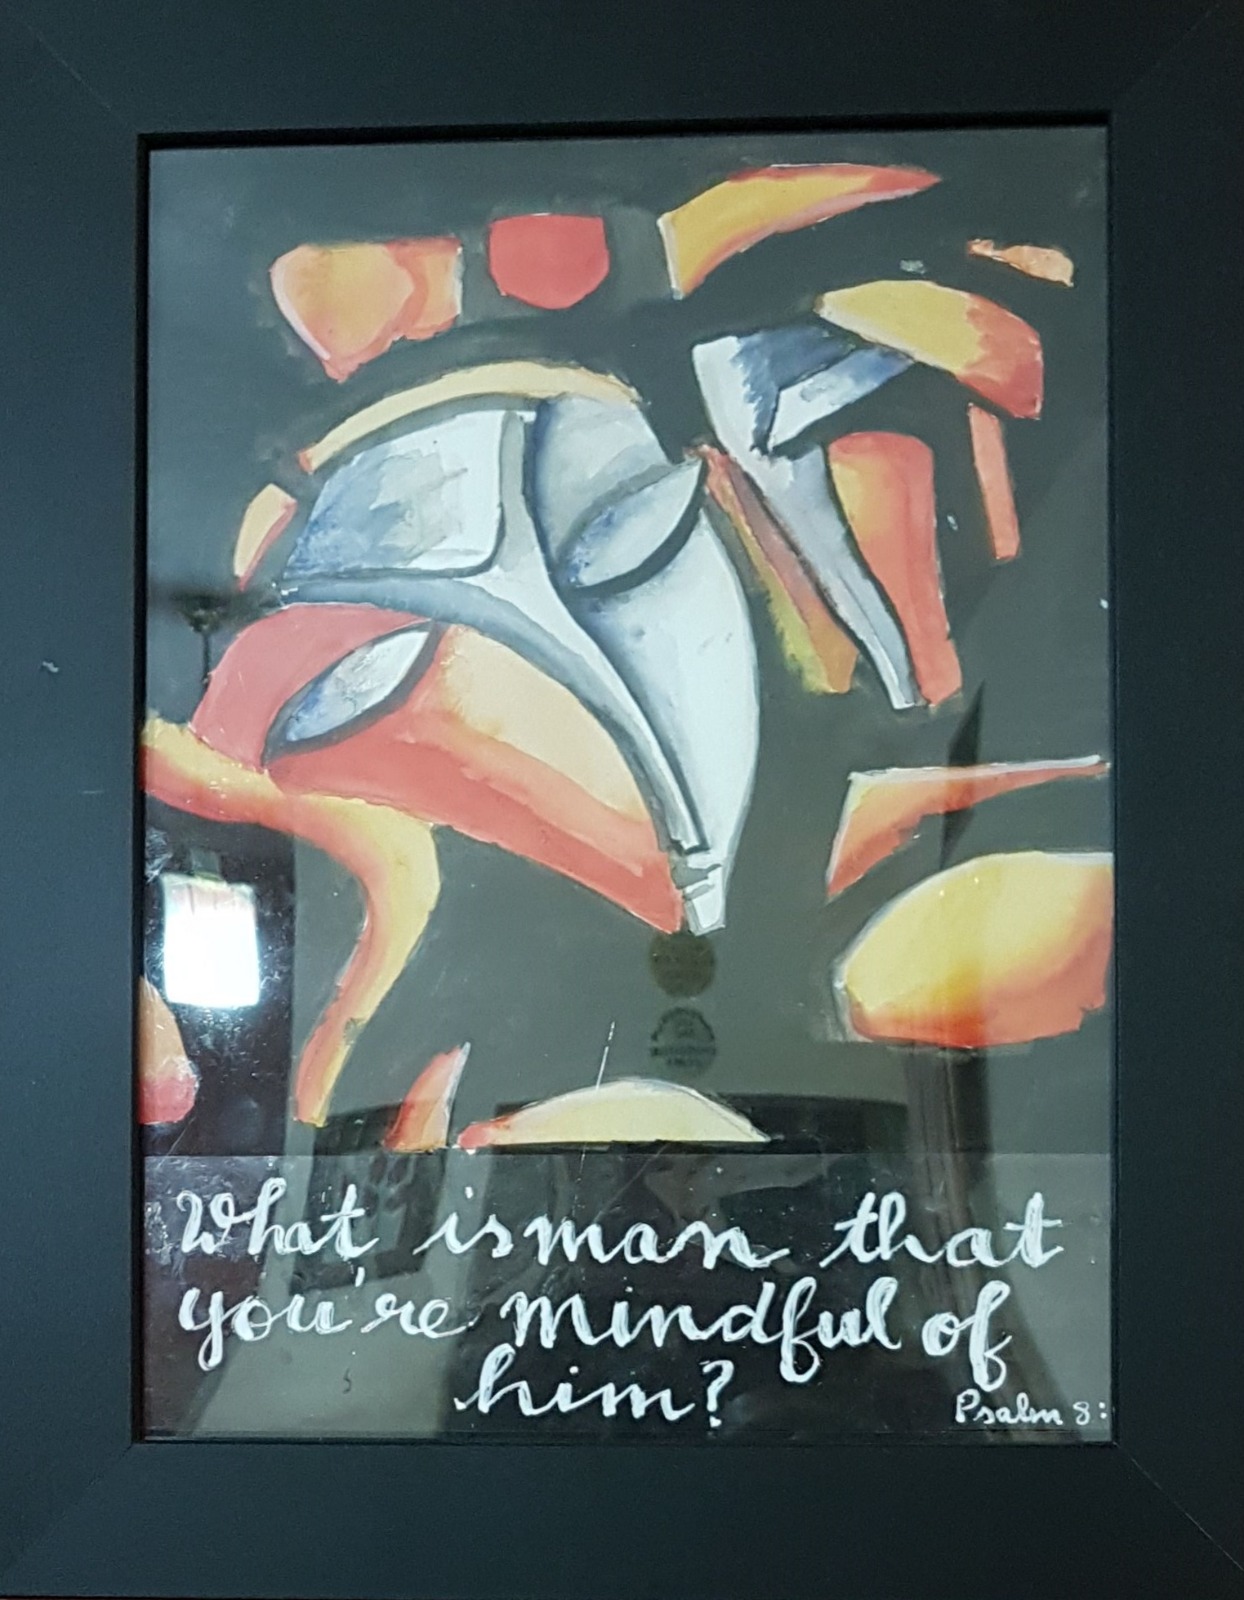 What is man that
you're mindful of
him?
Psalm 8: